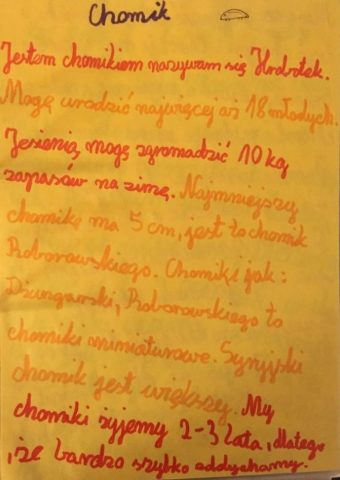 Chomik
Jestem chomikiem nazywam się Chrobotek.
Mogę urodzić najwięcej aż 18 młodych.
Jesienią, mogę zgromadzić 10 kg
zapasów na zimę. Najmniejszy
chomik ma 5 cm, jest to chomik
Roborowskiego. Chomiki jak:
Dżungarski, Roborowskiego to
chomiki miniaturowe. Syryjski
chomik jest większy. My
chomiki żyjemy 2-3 lata, dlatego
, że bardzo szybko oddychamy.